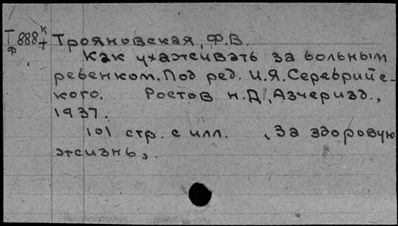 Т 888 к Трояновская, Ф.В.
Ф т
Как ухаживать за больным
ребенком. Под ред. И.Я. Серебрийс-
кого. Ростов н.Д, Азчеризд.,
1937.
101 стр. с илл. „За здоровую
жизнь„.